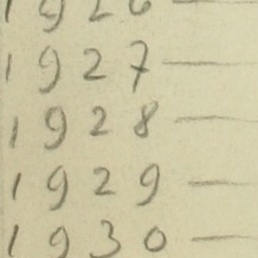 1926 —
1927 —
1928 —
1929 —
1930 —